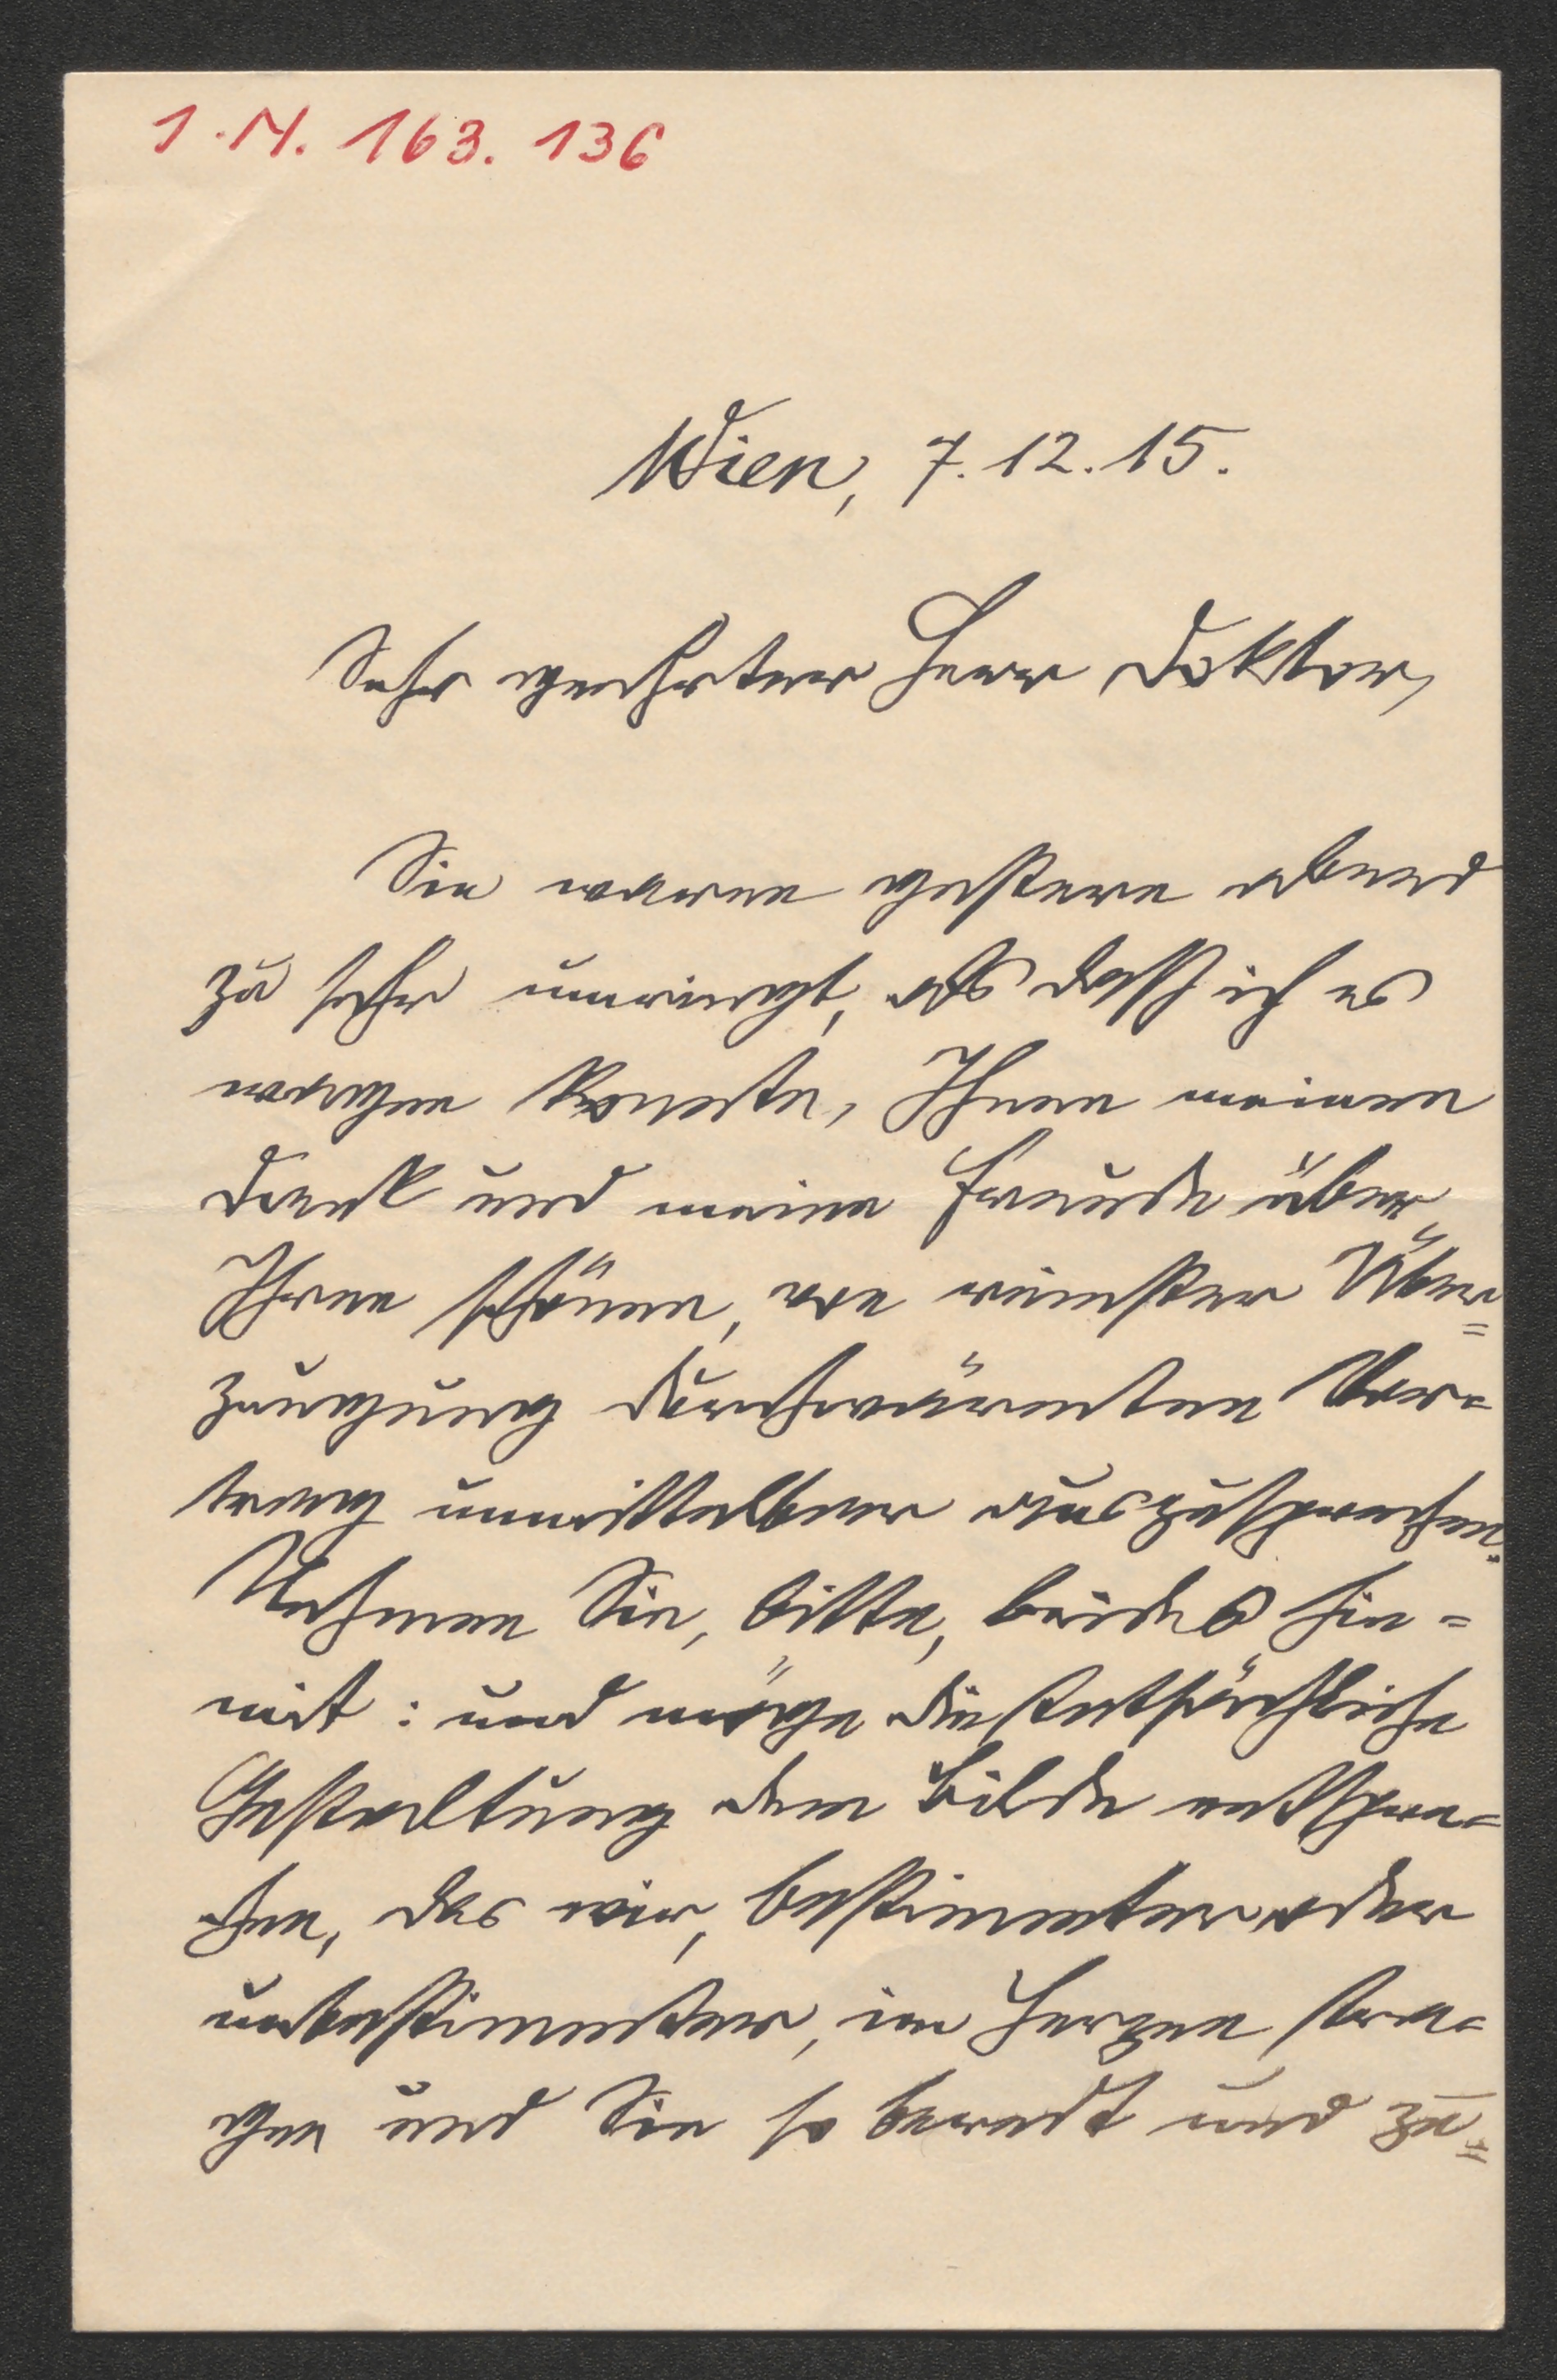 I.N. 163.136
Wien, 7.12.15.
Sehr geehrter Herr Doktor,
Sie waren gestern abend
zu sehr umringt, als dass ich es
wagen konnte, Ihnen meinen
Dank und meine Freude über
Ihren schönen, von reinster Über=
zeugung durchwärmten Vor=
trag unmittelbar auszusprechen.
Nehmen Sie, bitte, beides hie=
mit: und möge die tatsächliche
Gestaltung dem Bilde entspre=
chen, das wir, bestimmter oder
unbestimmter, im Herzen tra=
gen und Sie so beredt und zu=